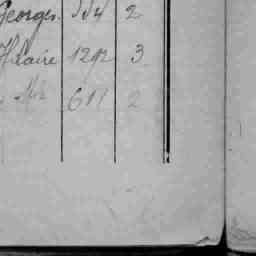 Georges. 554 2
Hilaire 1292 3
611 2